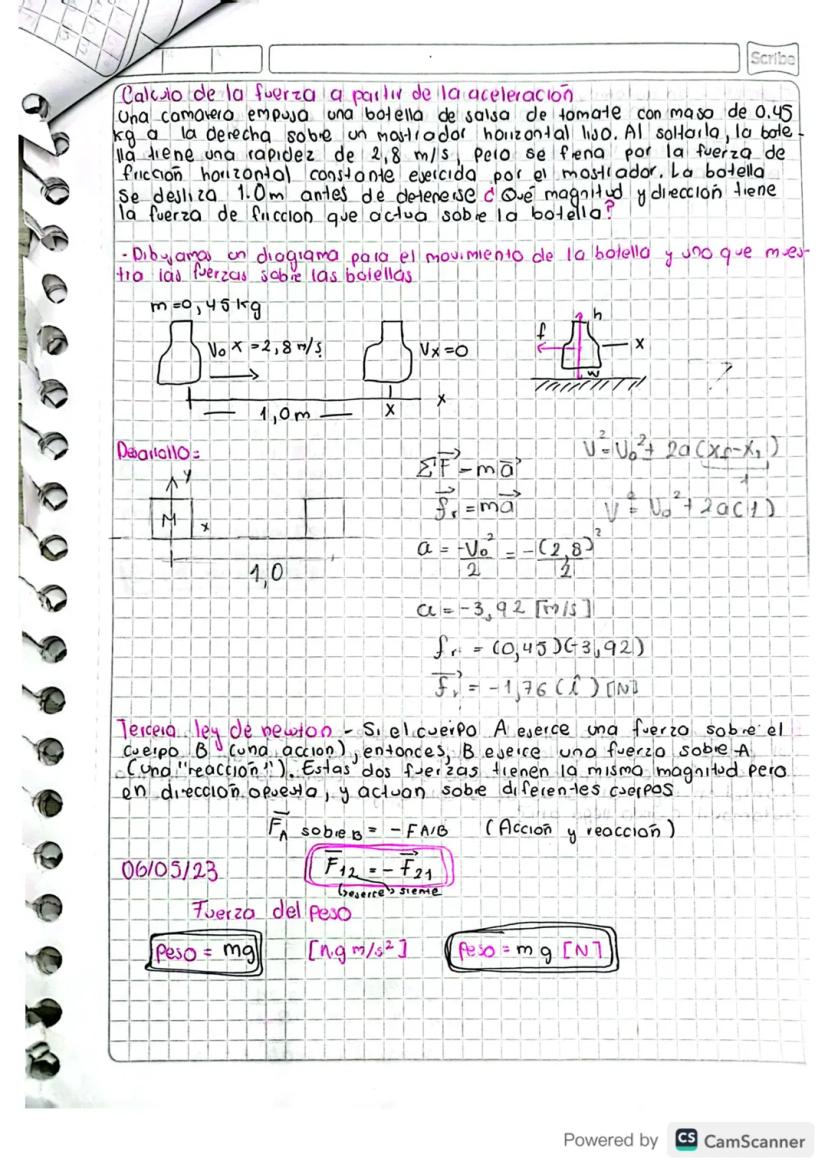 Scribe
Calculo de la fuerza a partir de la aceleración
Una camarera empuja una botella de salsa de tomate con masa de 0.45
kg a la derecha sobre un mostrador horizontal liso. Al soltarla, la bote-
lla tiene una rapidez de 2,8 m/s, pero se frena por la fuerza de
fricción horizontal constante ejercida por el mostrador. La botella
se desliza 1.0m antes de detenerse ¿Qué magnitud y dirección tiene
la fuerza de friccion que actua sobre la botella?
- Dibujamos un diagrama para el movimiento de la botella y uno que mues-
tra las fuerzas sobre las botellas
m=0,45kg
V₀x=2,8 m/s
Vx=0
f
h
x
w
1,0m
x
x
?
Desarrollo:
y
M
x
1,0
ΣF⃗ = ma⃗
f⃗r = ma⃗
a = -V₀²/2 = -(2,8)²/2
a = -3,92 [m/s]
fr = (0,45)(-3,92)
f⃗r = -1,76 (î) [N]
V² = V₀² + 2a(xf-x₁)
1
V² = V₀² + 2a(1)
Tercera ley de newton - Si el cuerpo A ejerce una fuerza sobre el
cuerpo B (una accion), entonces, B ejerce una fuerza sobre A
(una "reacción"). Estas dos fuerzas tienen la misma magnitud pero
en dirección opuesta, y actuan sobe diferentes cuerpos
F⃗A sobre B = -FA/B (Acción y reacción)
06/05/23
F⃗12 = -F⃗21
ejerce siente
Fuerza del peso
Peso = mg
[n.g m/s²]
Peso = mg [N]
Powered by CS CamScanner